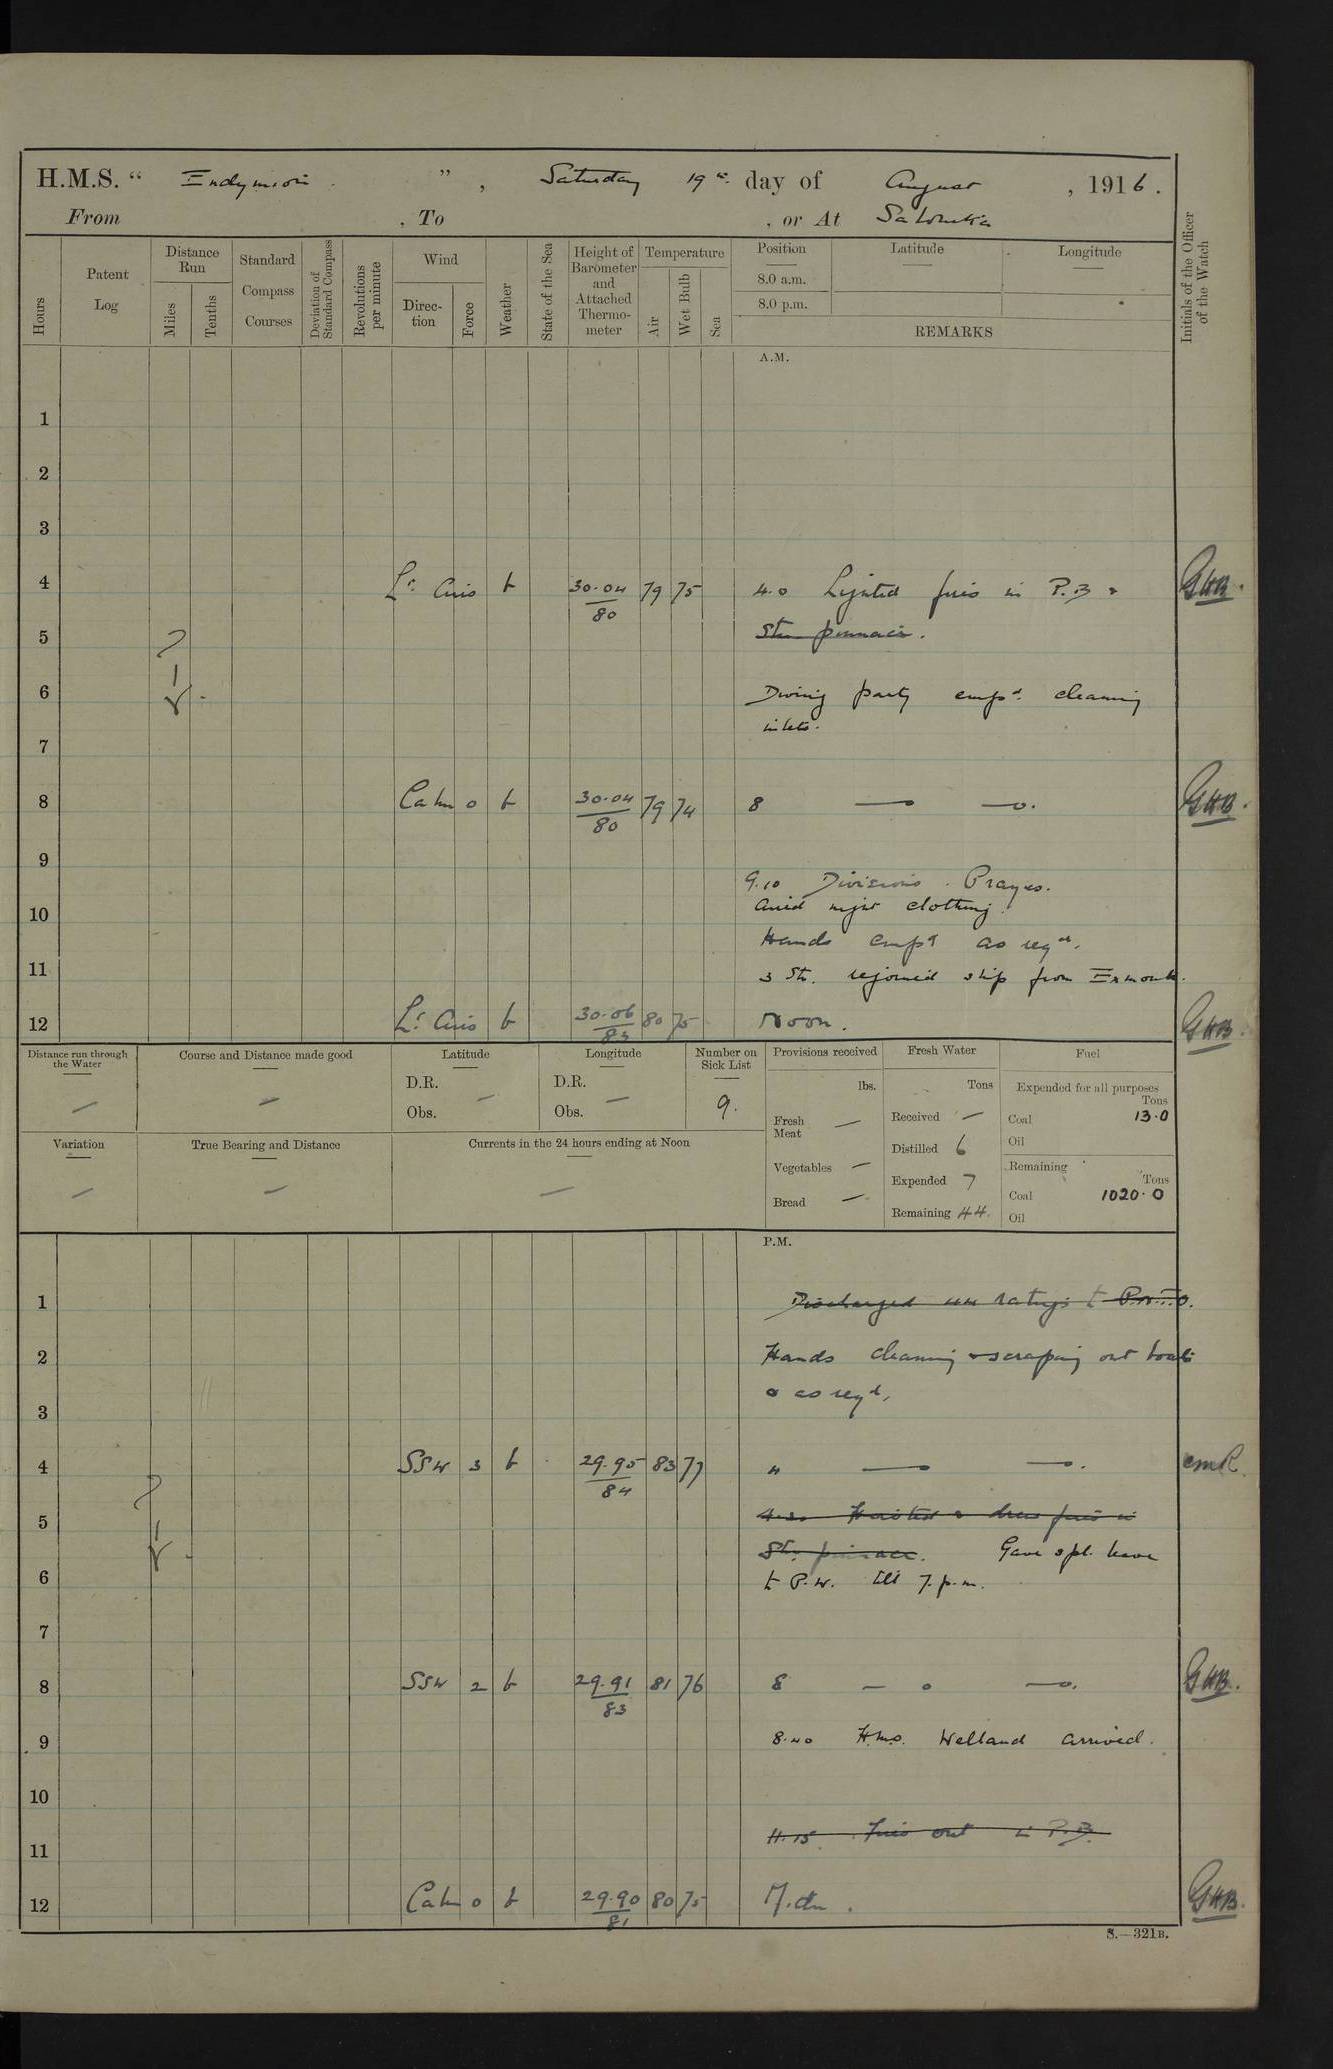 H.M.S. “ Endymion ” , Saturday 19th day of August , 1916.
From , To , or At Salonika
Hours
Patent Log
Distance Run
Miles
Tenths
Standard Compass Courses
Deviation of Standard Compass
Revolutions per minute
Wind
Direction
Force
Weather
State of the Sea
Height of Barometer and Attached Thermometer
Temperature
Air
Wet Bulb
Sea
Position
8.0 a.m.
8.0 p.m.
Latitude
Longitude
REMARKS
Initials of the Officer of the Watch
A.M.
1
2
3
4 Lt. Airs b 30.04/80 79 75 4.0 Lighted fires in P.B &
Stm pinnace. GHB.
5
6 Diving party empd. cleaning
inlets.
7
8 Calm 0 b 30.04/80 79 74 8 — —o. GHB.
9
9.10 Divisions. Prayers.
10 Aired night clothing.
Hands empd as reqd.
11 3 Sto. rejoined ship from Exmouth.
12 Lt. Airs b 30.06/83 80 75 Noon. GHB.
Distance run through the Water
—
Course and Distance made good
—
Latitude
D.R.
Obs. —
Longitude
D.R.
Obs. —
Number on Sick List
9.
Variation
—
True Bearing and Distance
—
Currents in the 24 hours ending at Noon
—
Provisions received
lbs.
Fresh Meat —
Vegetables —
Bread —
Fresh Water
Tons
Received —
Distilled 6
Expended 7
Remaining 44.
Fuel
Expended for all purposes
Tons
Coal 13.0
Oil
Remaining
Tons
Coal 1020.0
Oil
P.M.
1 Discharged ratings to
2 Hands cleaning & scraping out boats
& as reqd.
3
4 SSW 3 b 29.95/84 83 77 4 — —. CMR.
5 4.30 Hoisted & drew fires in
Stm. pinnace. Gave spl. leave
6 to P.W. till 7.p.m.
7
8 SSW 2 b 29.91/83 81 76 8 — o —o. GHB.
9 8.40 H.M.S. Welland arrived.
10
11.15 Fires out in P.B.
11
12 Calm 0 b 29.90/81 80 75 M.dn. GHB.
S.—321B.